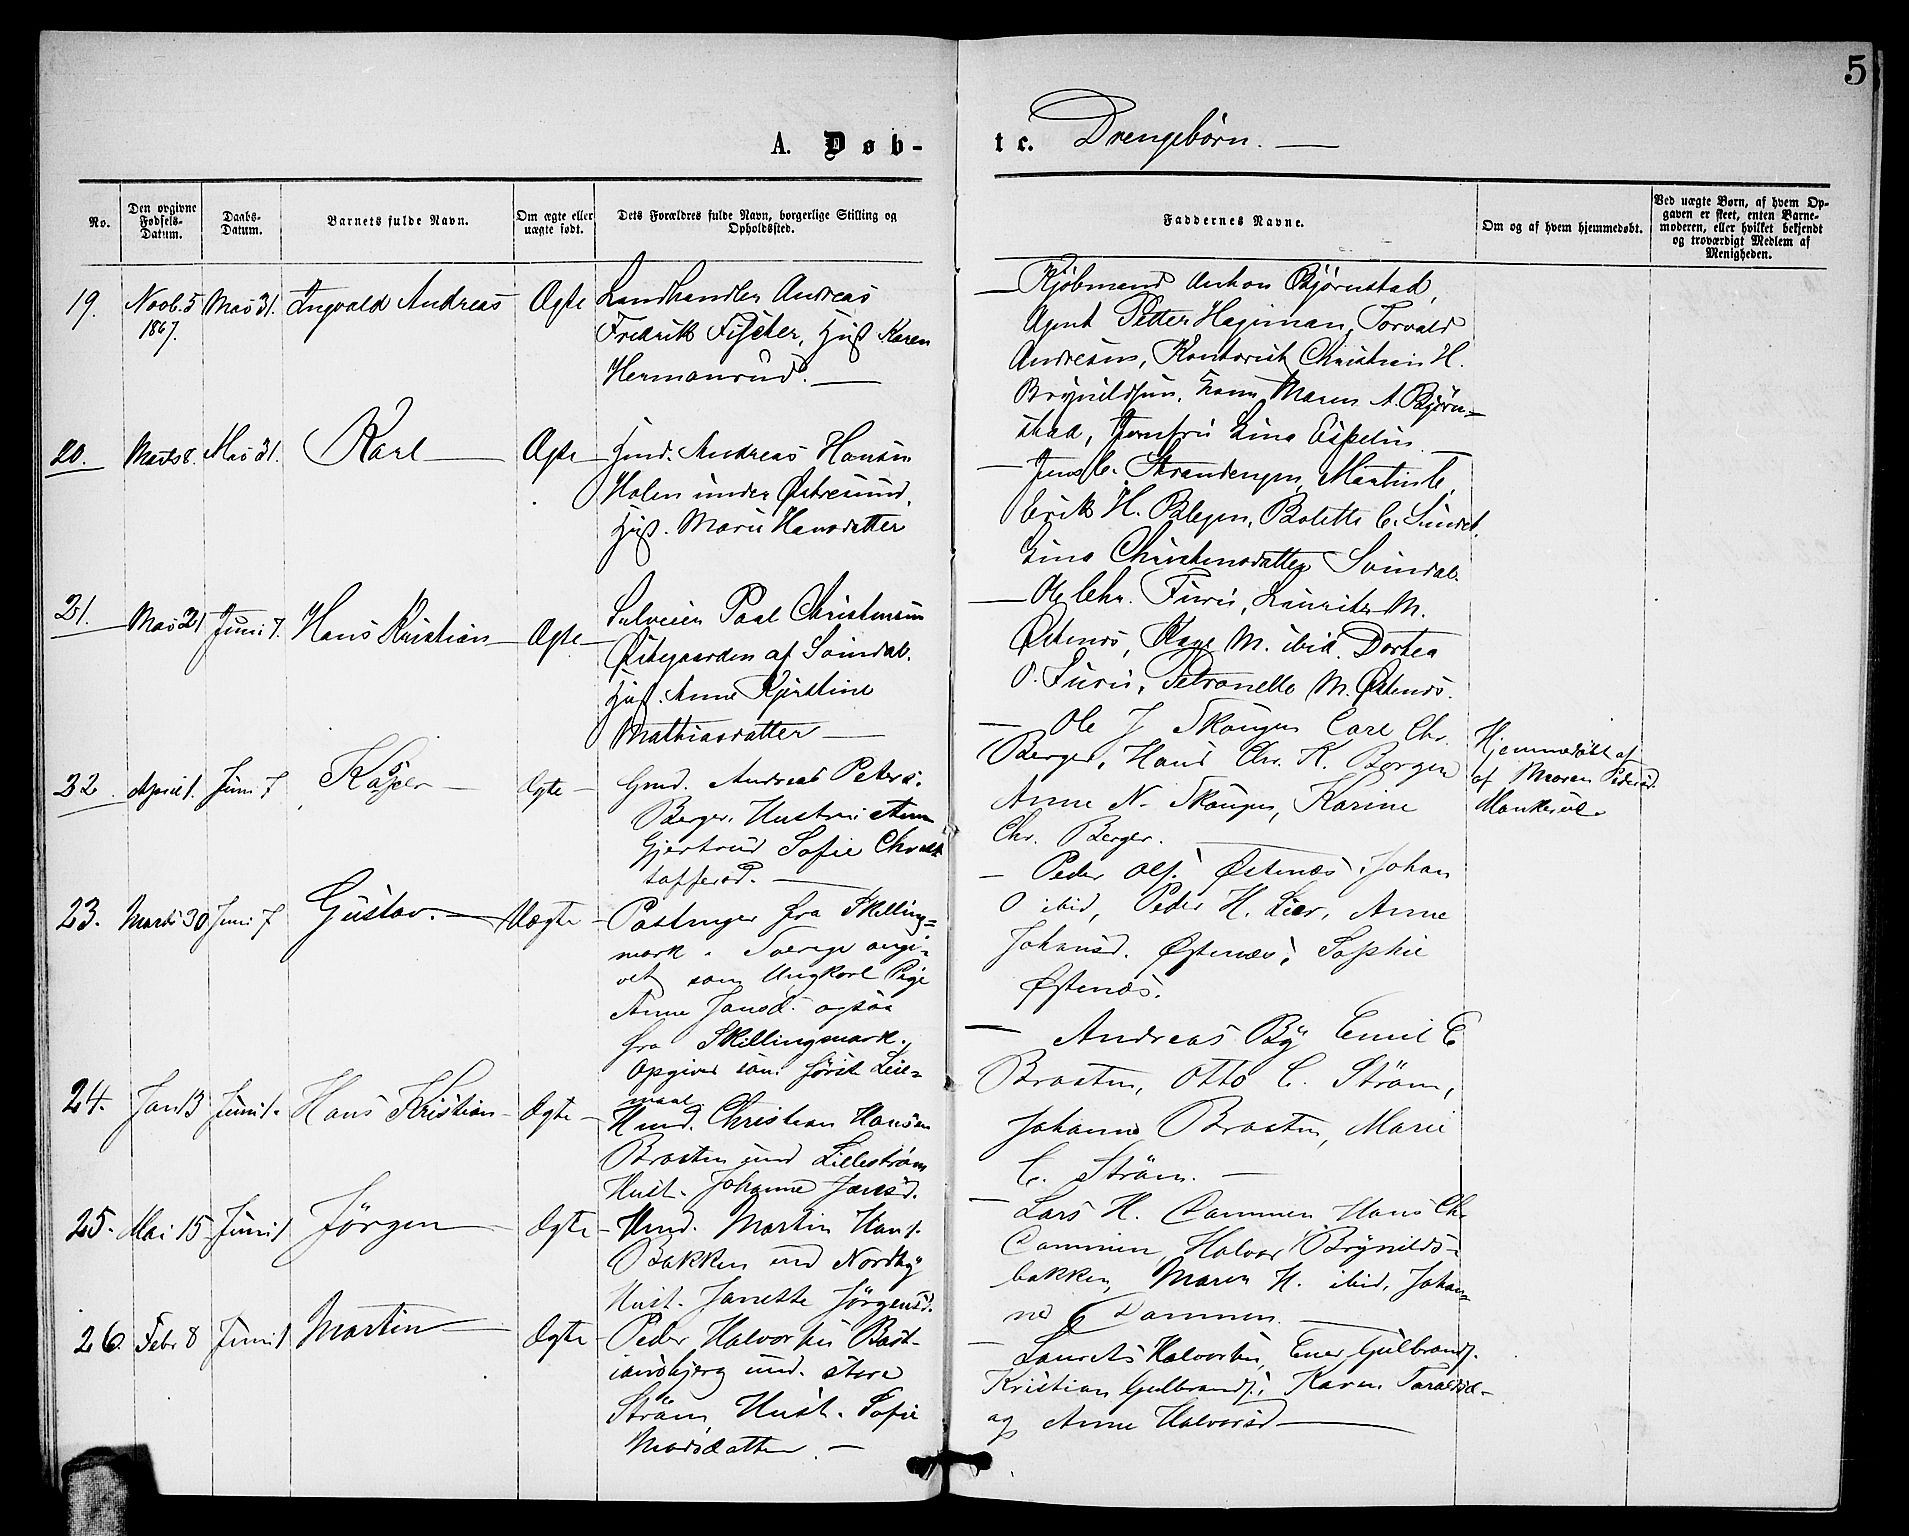 5
A. Døb-
te. Drengebørn.
No.
Den opgivne Fødsels-Datum.
Daabs-Datum.
Barnets fulde Navn.
Om ægte eller uægte født.
Dets Forældres fulde Navn, borgerlige Stilling og Opholdssted.
Faddernes Navne.
Om og af hvem hjemmedøbt.
Ved uægte Børn, af hvem Opgaven er skeet, enten Barnemoderen, eller hvilket bekjendt og troværdigt Medlem af Menigheden.
19. Novb. 5 1867. Mai 31. Ingvald Andreas Ægte
Landhandler Andreas
Fredrik Fischer, Hust Karen
Hermansrud.
Kjøbmand Anton Bjørnstad,
Agent Petter Hagman, Torvald
Andresen, Kontorist Christian H.
Brynildsen, Maren A. Bjørn-
stad, Jomfru Lina Espelin
20. Marts 8. Mai 31. Karl Ægte
Hmd. Andreas Hansen
Holen under Østresund,
Hust. Marie Hansdatter
Jens C. Strandengen, Martin C.
Erik H. Blegen, Bolette C.
Lina Christensdatter Svindal.
21. Mai 21 Juni 7. Hans Kristian Ægte
Selveier Paal Christensen
Østegaarden af Svindal.
Hust. Anne Kjerstine
Mathiasdatter
Ole Chr. Furu, Laurits M.
Østenes, Kaye M. ibid. Dortea
O. Furu, Petronelle M. Østenes.
22. April 1. Juni 7 Kasper Ægte
Gmd. Andreas Peters.
Berger, Hustru Anne
Gjertrud Sofie Christ
tofferd.
Ole J Skougen Carl Chr.
Berger, Hans Chr. K. Borgen
Anne N. Skougen, Karine
Chr. Berger.
Hjemmedøbt af
af Maren Pedersd.
Mankerud
23. Marts 30 Juni 7 Gustav. Uægte
fra Skilling=
mark i Sverige angi-
vet som Ungkarl Pige
Anne Jansd. ogsaa
fra Skillingmark.
Opgives som første Leie=
maal.
Peder Ols. Østenæs, Johan
O ibid, Peder H. Lier, Anne
Johansd. Østenæs, Sophie
Østenæs.
24. Jan 13 Juni 1. Hans Kristian Ægte
Hmd. Christian Hansen
Braaten und Lillestrøm
Hust. Johanne Jansd.
Andreas By Emil E
Braaten, Otto C. Strøm,
Johanne Braaten, Marie
C. Strøm.
25. Mai 15 Juni 1 Jørgen Ægte
Hmd. Martin Hans.
Bakken und Nordby
Hust. Janette Jørgensd.
Lars H. Dammen Hans Chr.
Dammen, Halvor Brynilds-
bakken, Maren H. ibid, Johan-
ne C Dammen.
26. Febr 8 Juni 1 Martin Ægte
Peder Halvorsen Bast-
iansbjerg und. store
Strøm, Hust. Sofie
Madsdatter.
Laurits Halvorsen, Ener Gulbrands.
Kristian Gulbrands., Karen Taraldsd
og Anne Halvorsd